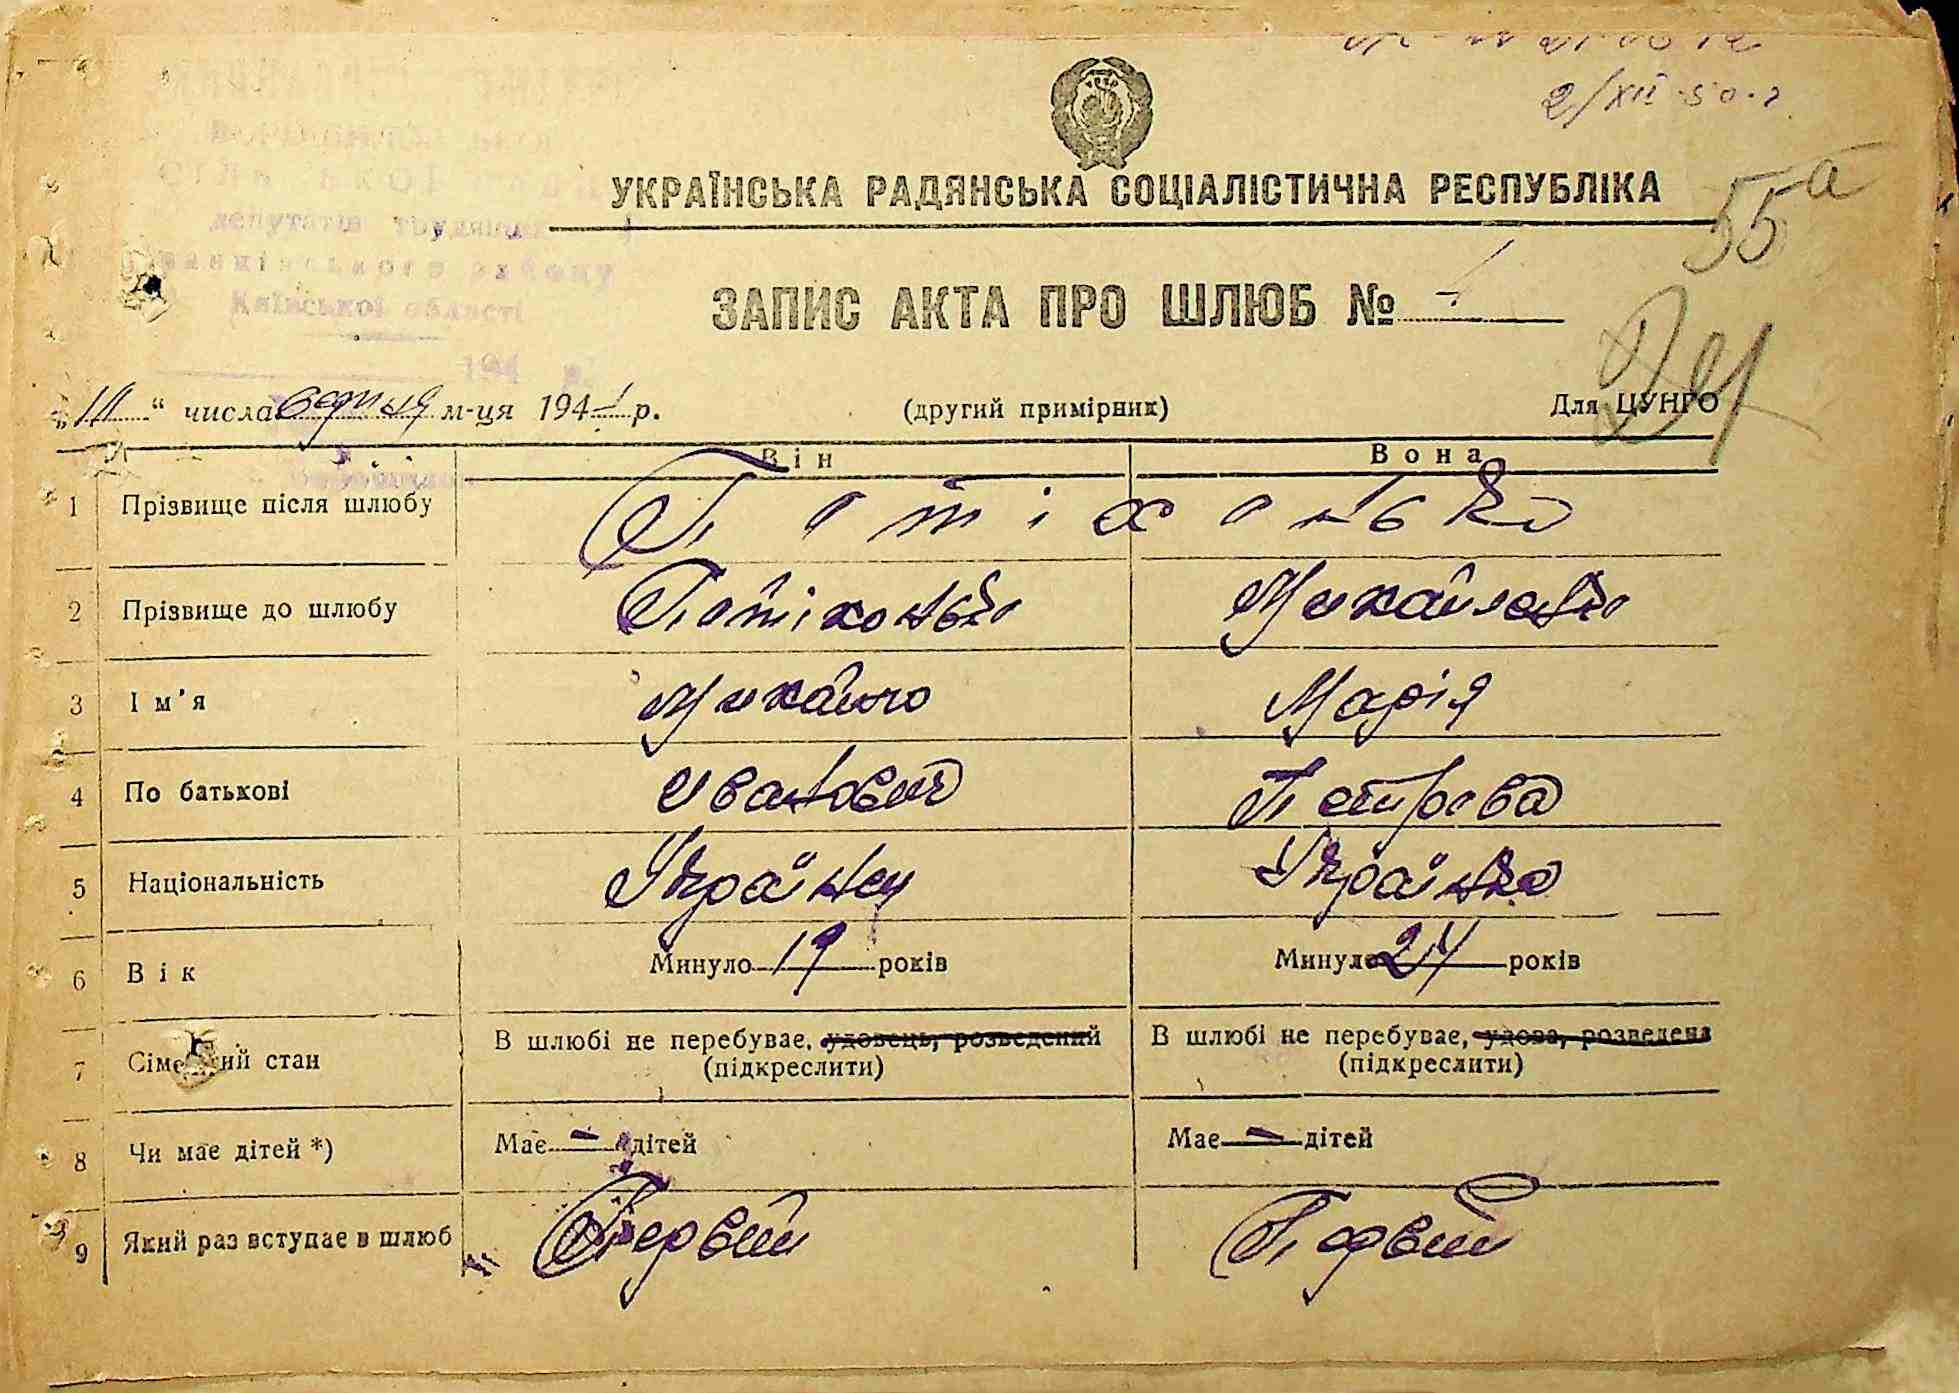 2/XII-50.г
УКРАЇНСЬКА РАДЯНСЬКА СОЦІАЛІСТИЧНА РЕСПУБЛІКА
55а
депутатів трудящих
району
Київської області
194 р.
ЗАПИС АКТА ПРО ШЛЮБ № 1
числа серпня м-ця 1941 р.
(другий примірник)
Для ЦУНГО
Він Вона
1 Прізвище після шлюбу Потіхонько
2 Прізвище до шлюбу Потіхонько Михайленко
3 Ім'я Михайло Марія
4 По батькові Иванович Петрова
5 Національність Українец Українка
6 Вік Минуло 19 років Минуло 24 років
7 Сімейний стан В шлюбі не перебуває, удовець, розведений В шлюбі не перебуває, удова, розведена
(підкреслити) (підкреслити)
8 Чи має дітей *) Має — дітей Має — дітей
9 Який раз вступає в шлюб Первий Первий